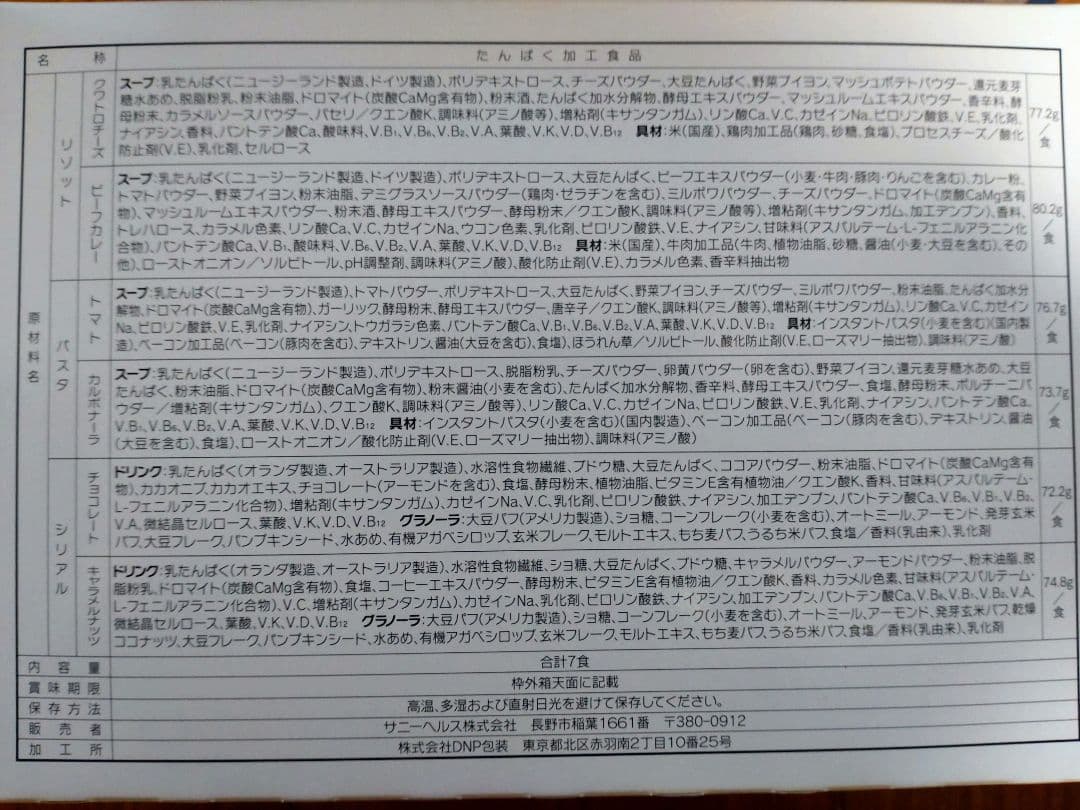 名称 たんぱく加工食品
原材料名
リゾット
クワトロチーズ
スープ:乳たんぱく(ニュージーランド製造、ドイツ製造)、ポリデキストロース、チーズパウダー、大豆たんぱく、野菜ブイヨン、マッシュポテトパウダー、還元麦芽
糖水あめ、脱脂粉乳、粉末油脂、ドロマイト(炭酸CaMg含有物)、粉末酒、たんぱく加水分解物、酵母エキスパウダー、マッシュルームエキスパウダー、香辛料、酵
母粉末、カラメルソースパウダー、パセリ/クエン酸K、調味料(アミノ酸等)、増粘剤(キサンタンガム)、リン酸Ca、V.C、カゼインNa、ピロリン酸鉄、V.E、乳化剤、
ナイアシン、香料、パントテン酸Ca、酸味料、V.B₁、V.B₆、V.B₂、V.A、葉酸、V.K、V.D、V.B₁₂ 具材:米(国産)、鶏肉加工品(鶏肉、砂糖、食塩)、プロセスチーズ/酸化
防止剤(V.E)、乳化剤、セルロース
77.2g/食
ビーフカレー
スープ:乳たんぱく(ニュージーランド製造、ドイツ製造)、ポリデキストロース、大豆たんぱく、ビーフエキスパウダー(小麦・牛肉・豚肉・りんごを含む)、カレー粉、
トマトパウダー、野菜ブイヨン、粉末油脂、デミグラスソースパウダー(鶏肉・ゼラチンを含む)、ミルポワパウダー、チーズパウダー、ドロマイト(炭酸CaMg含有
物)、マッシュルームエキスパウダー、粉末酒、酵母エキスパウダー、酵母粉末/クエン酸K、調味料(アミノ酸等)、増粘剤(キサンタンガム、加工デンプン)、香料、
トレハロース、カラメル色素、リン酸Ca、V.C、カゼインNa、ウコン色素、乳化剤、ピロリン酸鉄、V.E、ナイアシン、甘味料(アスパルテーム・L-フェニルアラニン化
合物)、パントテン酸Ca、V.B₁、酸味料、V.B₆、V.B₂、V.A、葉酸、V.K、V.D、V.B₁₂ 具材:米(国産)、牛肉加工品(牛肉、植物油脂、砂糖、醤油(小麦・大豆を含む)、その
他)、ローストオニオン/ソルビトール、pH調整剤、調味料(アミノ酸)、酸化防止剤(V.E)、カラメル色素、香辛料抽出物
80.2g/食
パスタ
トマト
スープ:乳たんぱく(ニュージーランド製造)、トマトパウダー、ポリデキストロース、大豆たんぱく、野菜ブイヨン、チーズパウダー、ミルポワパウダー、粉末油脂、たんぱく加水分
解物、ドロマイト(炭酸CaMg含有物)、ガーリック、酵母粉末、酵母エキスパウダー、唐辛子/クエン酸K、調味料(アミノ酸等)、増粘剤(キサンタンガム)、リン酸Ca、V.C、カゼイン
Na、ピロリン酸鉄、V.E、乳化剤、ナイアシン、トウガラシ色素、パントテン酸Ca、V.B₁、V.B₆、V.B₂、V.A、葉酸、V.K、V.D、V.B₁₂ 具材:インスタントパスタ(小麦を含む)(国内製
造)、ベーコン加工品(ベーコン(豚肉を含む)、デキストリン、醤油(大豆を含む)、食塩)、ほうれん草/ソルビトール、酸化防止剤(V.E、ローズマリー抽出物)、調味料(アミノ酸)
76.7g/食
カルボナーラ
スープ:乳たんぱく(ニュージーランド製造)、ポリデキストロース、脱脂粉乳、チーズパウダー、卵黄パウダー(卵を含む)、野菜ブイヨン、還元麦芽糖水あめ、大豆
たんぱく、粉末油脂、ドロマイト(炭酸CaMg含有物)、粉末醤油(小麦を含む)、たんぱく加水分解物、香辛料、酵母エキスパウダー、食塩、酵母粉末、ポルチーニパ
ウダー/増粘剤(キサンタンガム)、クエン酸K、調味料(アミノ酸等)、リン酸Ca、V.C、カゼインNa、ピロリン酸鉄、V.E、乳化剤、ナイアシン、パントテン酸Ca、
V.B₁、V.B₆、V.B₂、V.A、葉酸、V.K、V.D、V.B₁₂ 具材:インスタントパスタ(小麦を含む)(国内製造)、ベーコン加工品(ベーコン(豚肉を含む)、デキストリン、醤油
(大豆を含む)、食塩)、ローストオニオン/酸化防止剤(V.E、ローズマリー抽出物)、調味料(アミノ酸)
73.7g/食
シリアル
チョコレート
ドリンク:乳たんぱく(オランダ製造、オーストラリア製造)、水溶性食物繊維、ブドウ糖、大豆たんぱく、ココアパウダー、粉末油脂、ドロマイト(炭酸CaMg含有
物)、カカオニブ、カカオエキス、チョコレート(アーモンドを含む)、食塩、酵母粉末、植物油脂、ビタミンE含有植物油/クエン酸K、香料、甘味料(アスパルテーム・
L-フェニルアラニン化合物)、増粘剤(キサンタンガム)、カゼインNa、V.C、乳化剤、ピロリン酸鉄、ナイアシン、加工デンプン、パントテン酸Ca、V.B₆、V.B₁、V.B₂、
V.A、微結晶セルロース、葉酸、V.K、V.D、V.B₁₂ グラノーラ:大豆パフ(アメリカ製造)、ショ糖、コーンフレーク(小麦を含む)、オートミール、アーモンド、発芽玄米
パフ、大豆フレーク、パンプキンシード、水あめ、有機アガベシロップ、玄米フレーク、モルトエキス、もち麦パフ、うるち米パフ、食塩/香料(乳由来)、乳化剤
72.2g/食
キャラメルナッツ
ドリンク:乳たんぱく(オランダ製造、オーストラリア製造)、水溶性食物繊維、ショ糖、大豆たんぱく、ブドウ糖、キャラメルパウダー、アーモンドパウダー、粉末油脂、脱
脂粉乳、ドロマイト(炭酸CaMg含有物)、食塩、コーヒーエキスパウダー、酵母粉末、ビタミンE含有植物油/クエン酸K、香料、カラメル色素、甘味料(アスパルテーム・
L-フェニルアラニン化合物)、V.C、増粘剤(キサンタンガム)、カゼインNa、乳化剤、ピロリン酸鉄、ナイアシン、加工デンプン、パントテン酸Ca、V.B₆、V.B₁、V.B₂、V.A、
微結晶セルロース、葉酸、V.K、V.D、V.B₁₂ グラノーラ:大豆パフ(アメリカ製造)、ショ糖、コーンフレーク(小麦を含む)、オートミール、アーモンド、発芽玄米パフ、乾燥
ココナッツ、大豆フレーク、パンプキンシード、水あめ、有機アガベシロップ、玄米フレーク、モルトエキス、もち麦パフ、うるち米パフ、食塩/香料(乳由来)、乳化剤
74.8g/食
内容量 合計7食
賞味期限 枠外箱天面に記載
保存方法 高温、多湿および直射日光を避けて保存してください。
販売者 サニーヘルス株式会社 長野市稲葉1661番 〒380-0912
加工所 株式会社DNP包装 東京都北区赤羽南2丁目10番25号